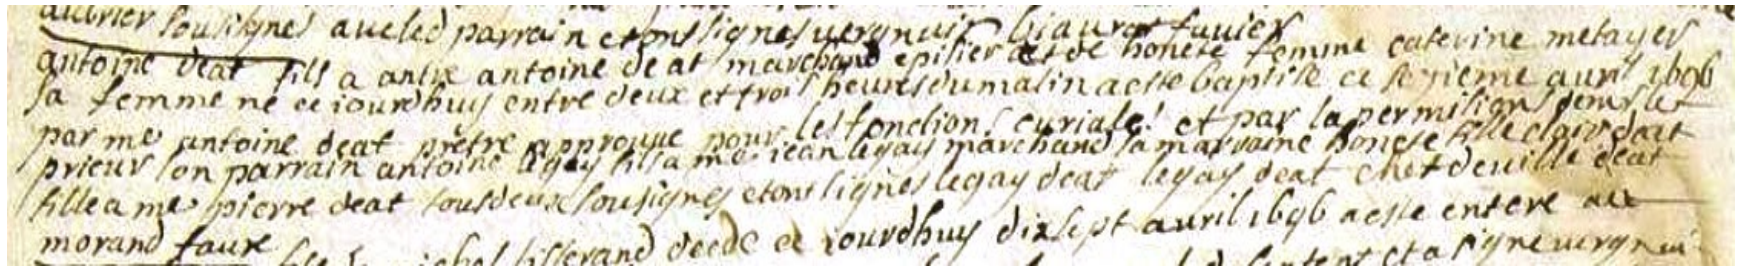 aubrier sousignes avecled parrain et ont signes vergnuit biaurat favier
antoine deat fils a antre antoine deat marchand episier et de honete femme caterine metayer
sa femme né ce iourdhuy entre deux et troi heures du matin a este baptise ce sezieme avril 1696
par me antoine deat prêtre approuve pour les fonctions curiales et par la permition de mr le
prieur son parrain antoine legay fils a me iean legay marchand sa marraine honete fille claire deat
fille a me pierre deat tous deux sousignes et ont signes legay deat legay deat deville deat
morand faure
tisserand decede ce iourdhuy dixsept avril 1696 a este enterré
et a signe